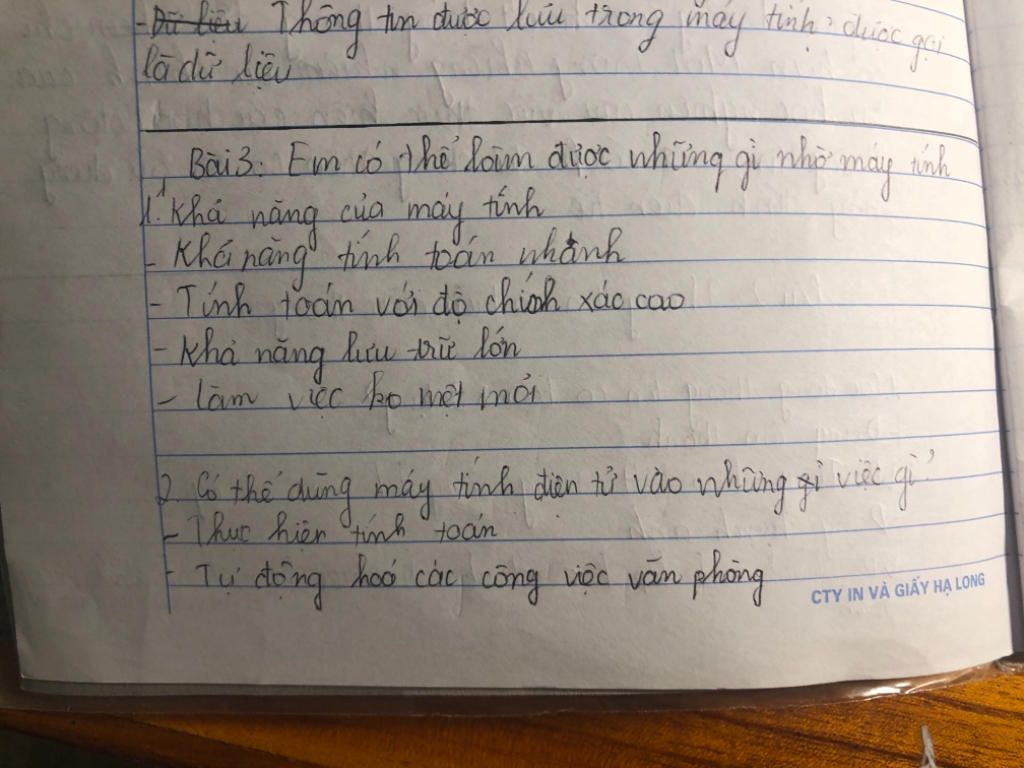 - Dữ liệu Thông tin được lưu trong máy tính được gọi
là dữ liệu
Bài 3: Em có thể làm được những gì nhờ máy tính
1. Khả năng của máy tính
- Khả năng tính toán nhanh
- Tính toán với độ chính xác cao
- Khả năng lưu trữ lớn
- làm việc ko mệt mỏi
2. Có thể dùng máy tính điện tử vào những gì việc gì?
- Thực hiện tính toán
- Tự động hoá các công việc văn phòng
CTY IN VÀ GIẤY HẠ LONG